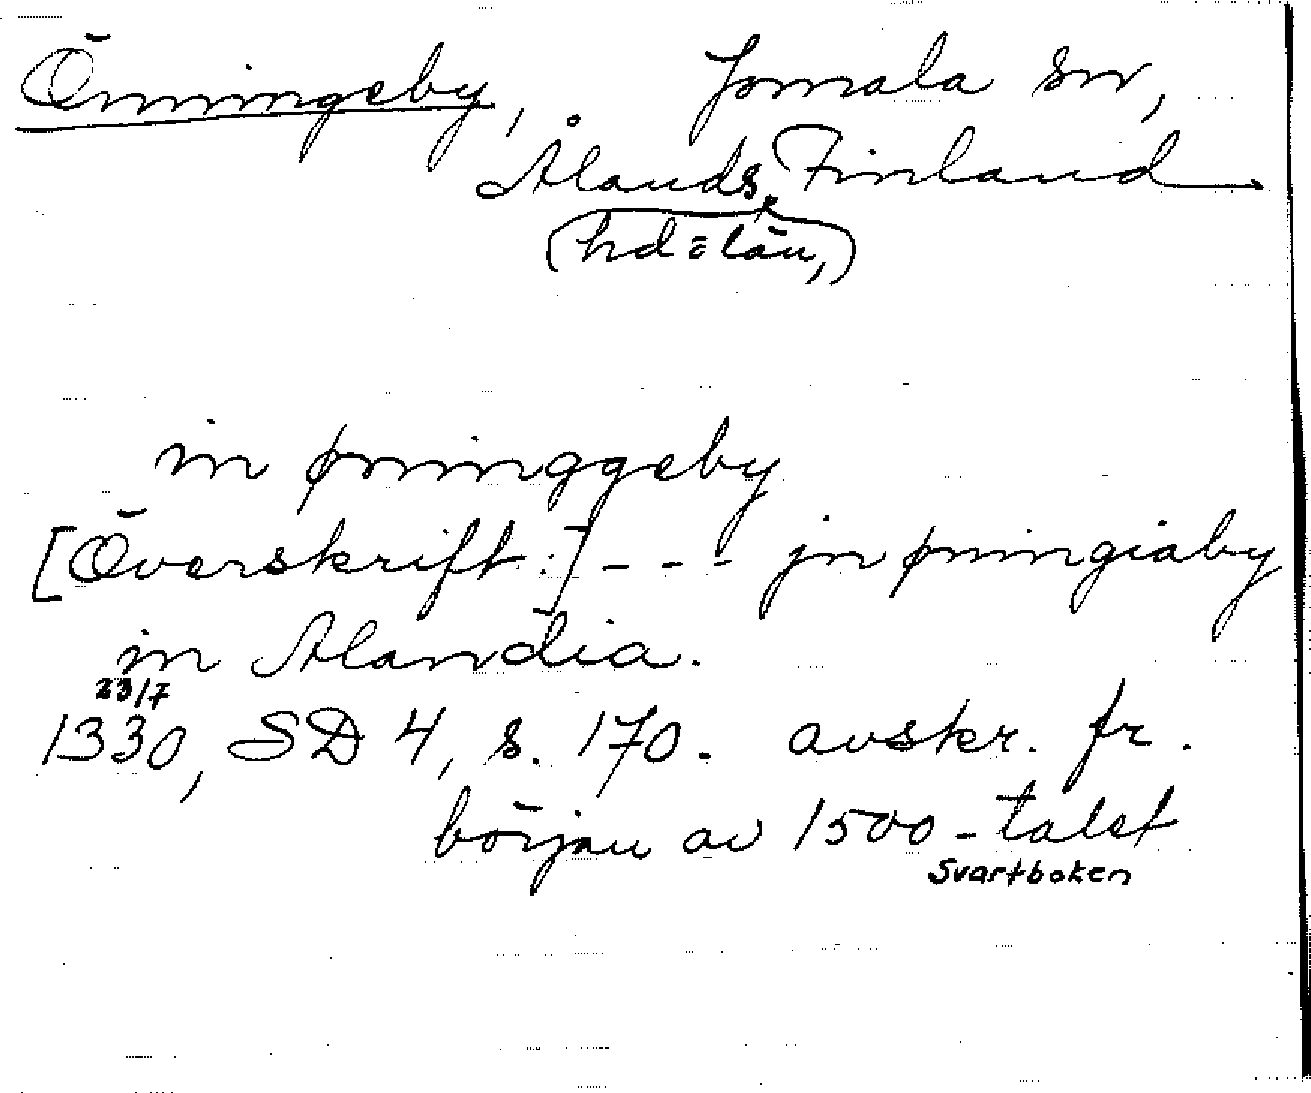 Önningeby, Jomala sn,
Ålands, Finland
(hd = län,)
in ønınggeby
[Överskrift:] - - - jn øningiaby
in Alandia.
23/7
1330, SD 4, s. 170. avskr. fr.
början av 1500-talet
Svartboken